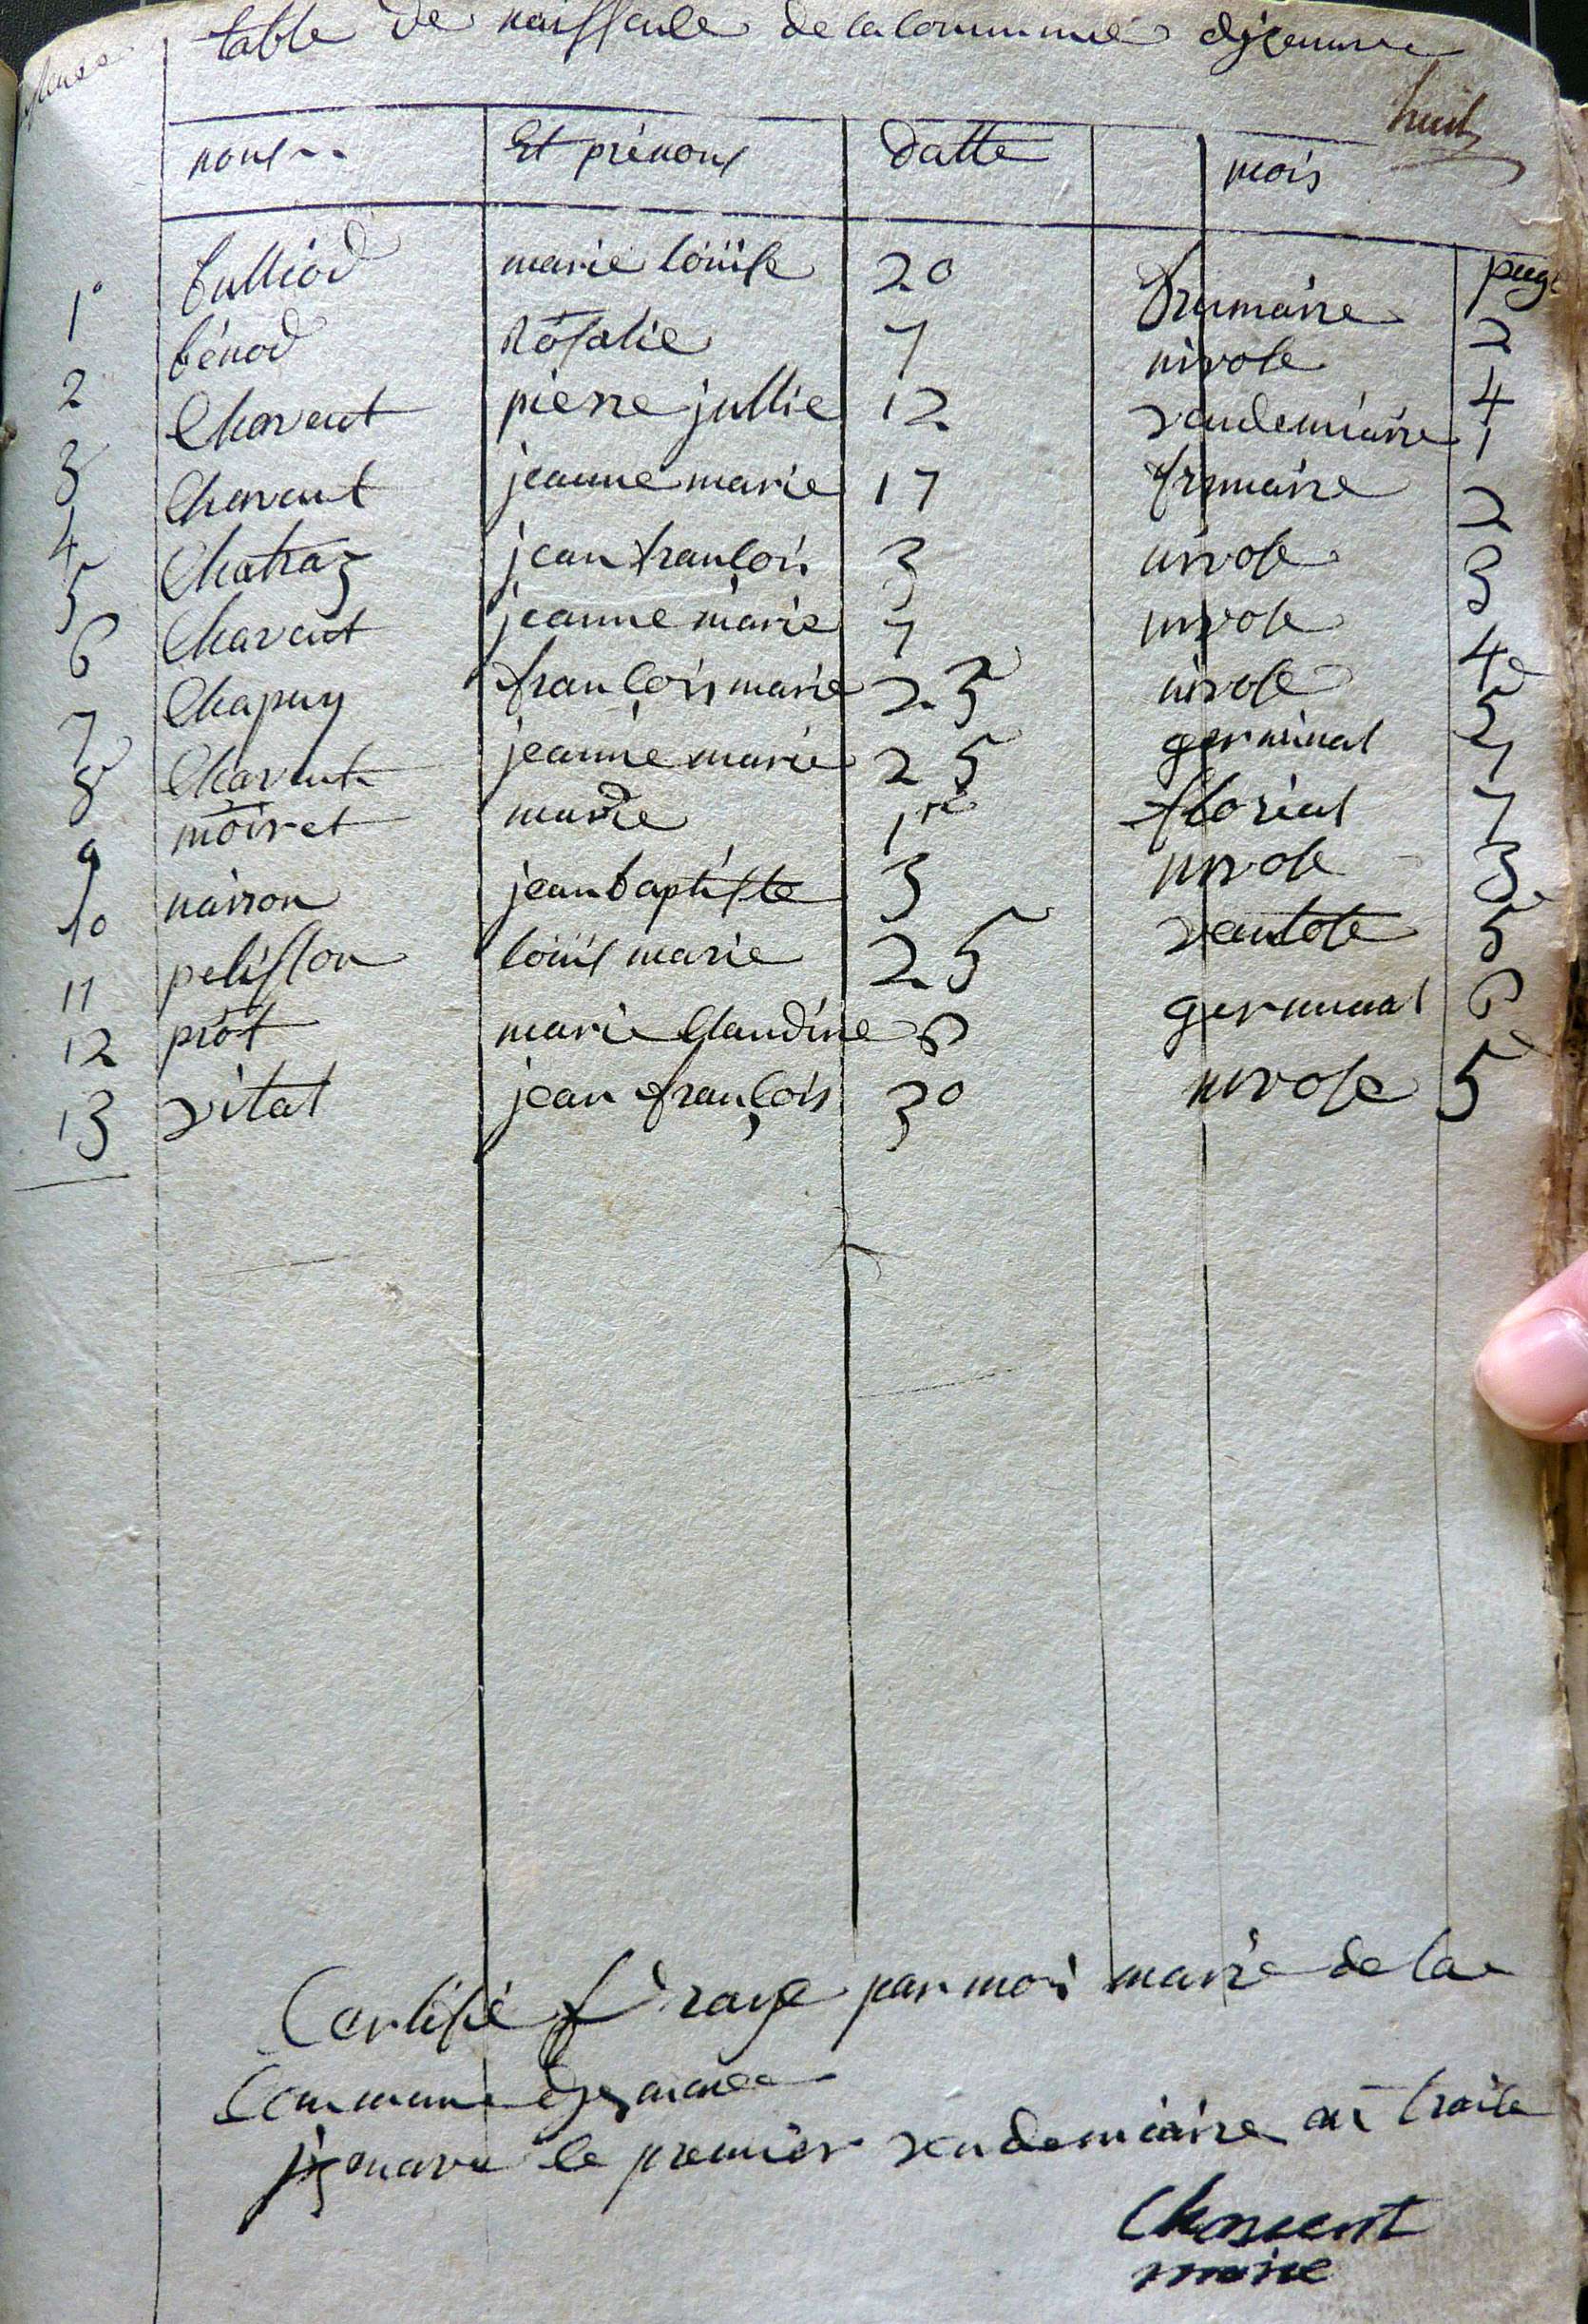 table de naissense de la commune digenave
huit
noms Et prénoms datte mois
page
1° bulliod marie loüise 20 frumaire 2
2 bénod Rosalie 7 nivose 4
3 Chavent pierre jullie 12 vendemiaire 1
4 Chavent jeanne marie 17 frimaire 2
5 Chatraz jean françois 3 nivose 3
6 Chavent jeanne marie 7 nivose 4
7 Chapuy françois marie 25 nivose 5
8 Chavent jeanne marie 25 germinal 7
9 moiret marie 1re florial 7
10 nairon jean baptiste 3 nivose 3
11 pelisson loüis marie 25 vantose 5
12 prost marie Claudine 6 germinal 6
13 vital jean françois 30 nivose 5
Certifié par moi maire de la
Commune digenave
jigenave le premier vendemiaire an traite
Chavent
maire